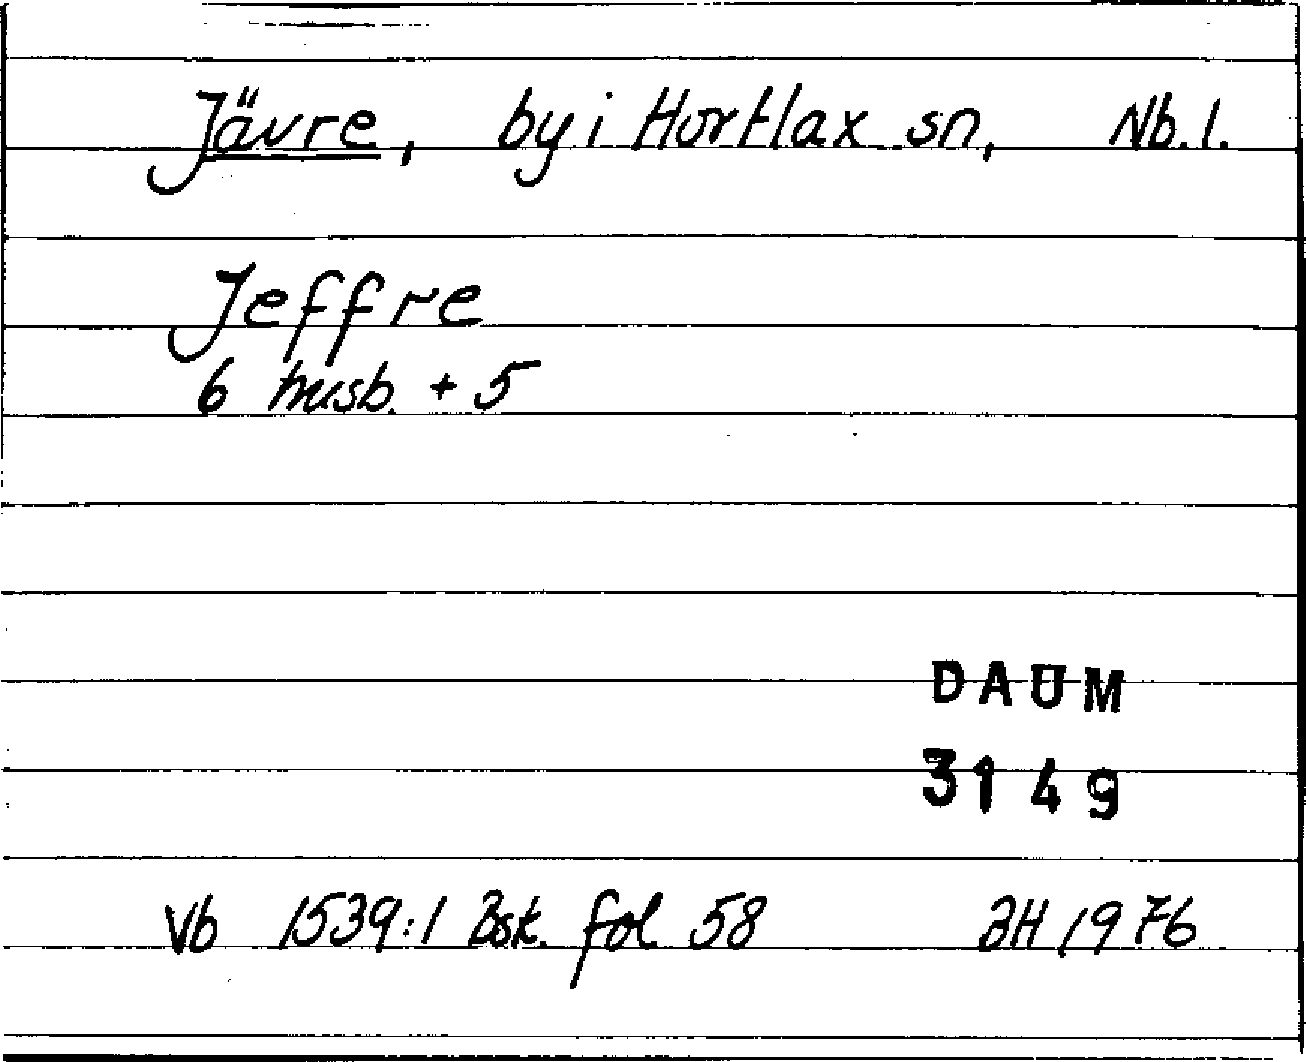 Jävre, by i Hortlax sn, Nb. l.
Jeffre
6 husb. + 5
DAUM
3149
Vb 1539:1 Bsk. fol 58 BH 1976